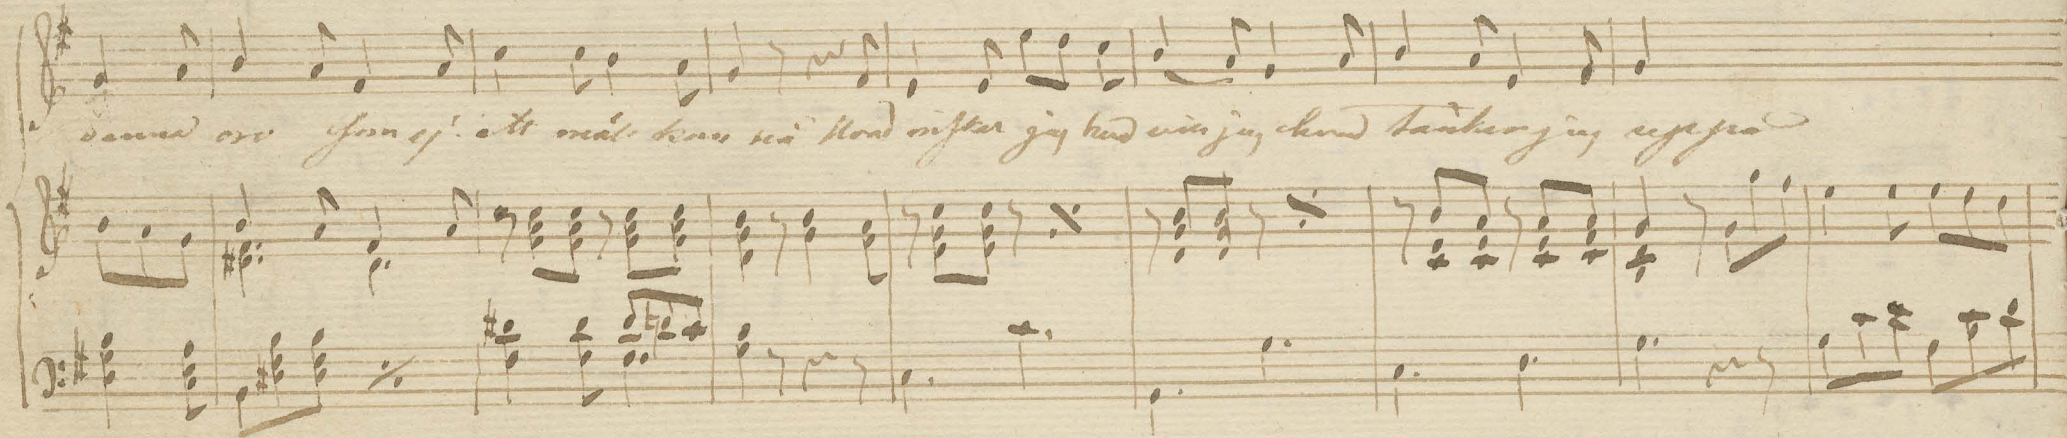 denna oro som ej ett mål kan nå hvad önskar jag hvad vill jag hvad tänker jag uppå